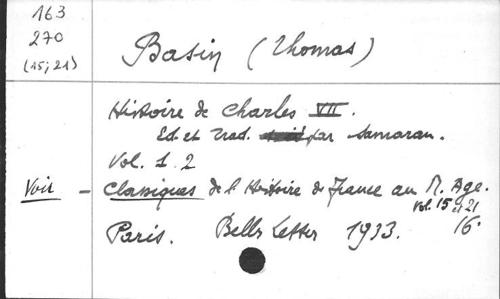 163
270
(15;21)
Basin (Thomas)
Histoire de Charles VII.
Ed. et Trad. par Samaran.
Vol. 1. 2
Voir - Classiques de l'Histoire de France au M. Age.
Vol. 15 et 21
Paris. Belles Letter 1933. 16°